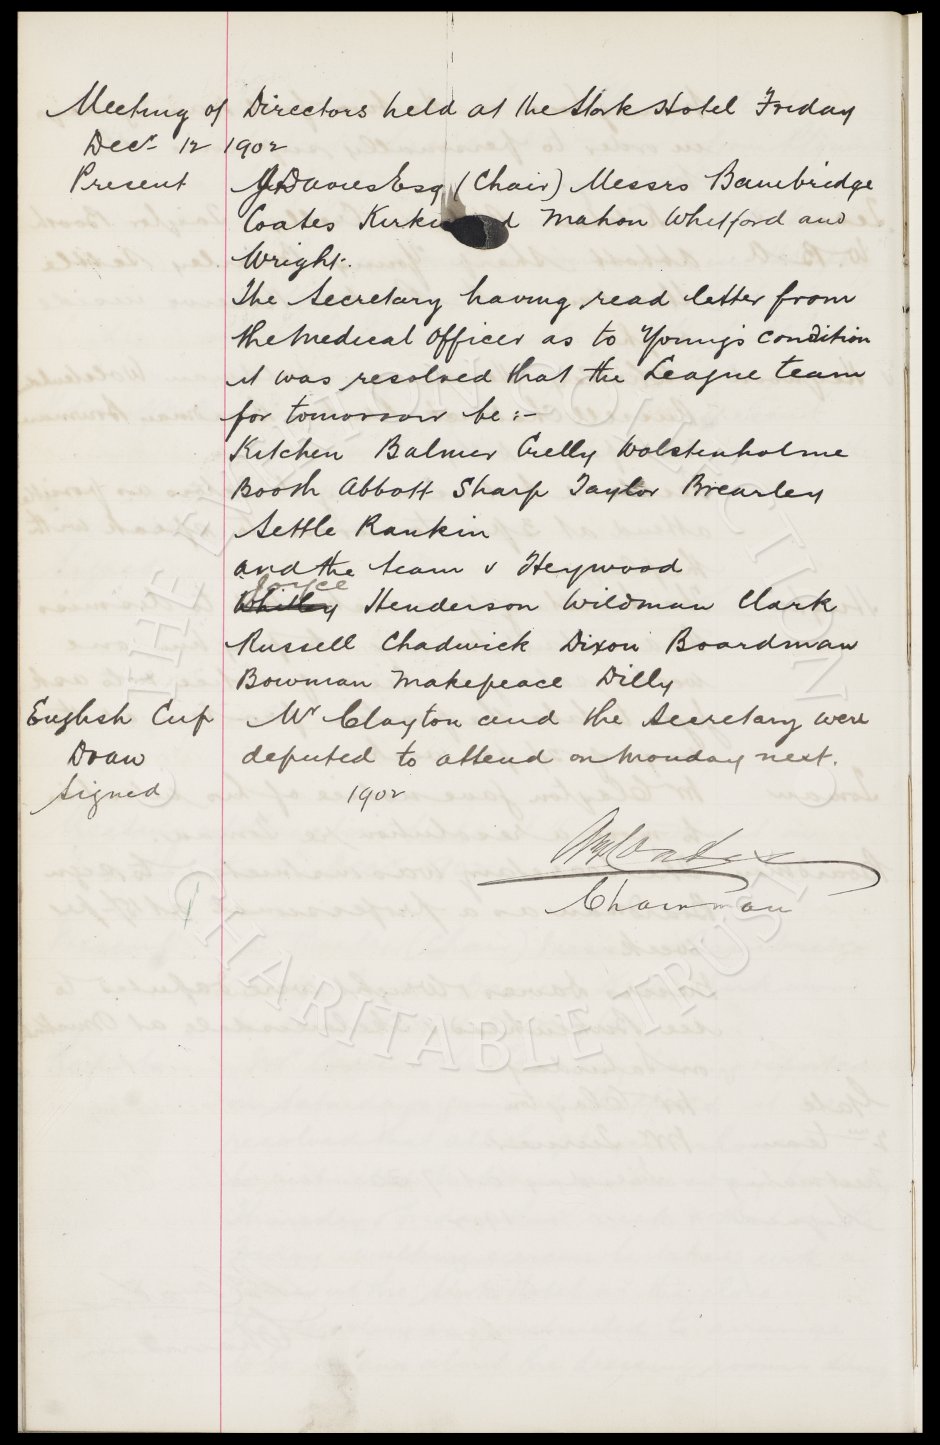 Meeting of Directors held at the Stork Hotel Friday
Decr 12 1902
Present Davies Esq (Chair) Messrs Bainbridge
Coates Mahon Whitford and
Wright.
The Secretary having read letter from
the Medical Officer as to Young's condition
it was resolved that the League team
for tomorrow be :-
Kitchen Balmer Crelly Wolstenholme
Booth Abbott Sharp Taylor Brearley
Settle Rankin
and the team v Heywood
Joyce
Whitley Henderson Wildman Clark
Russell Chadwick Dixon Boardman
Bowman Makepeace Dilly
English Cup Mr Clayton and the Secretary were
Draw deputed to attend on Monday next.
Signed 1902
Chairman
THE EVERTON COLLECTION
CHARITABLE TRUST